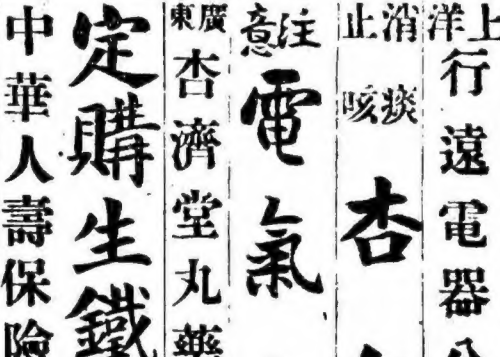 上洋行遠電器
消痰
止咳
杏
注意
電氣
廣東
杏濟堂丸藥
定購生鐵
中華人壽保險